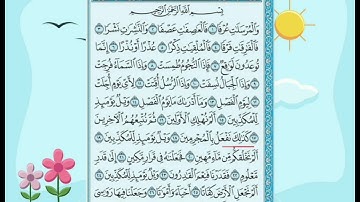 بِسْمِ اللَّهِ الرَّحْمَٰنِ الرَّحِيمِ
وَالْمُرْسَلَاتِ عُرْفًا ۝١ فَالْعَاصِفَاتِ عَصْفًا ۝٢ وَالنَّاشِرَاتِ نَشْرًا ۝٣
فَالْفَارِقَاتِ فَرْقًا ۝٤ فَالْمُلْقِيَاتِ ذِكْرًا ۝٥ عُذْرًا أَوْ نُذْرًا ۝٦ إِنَّمَا
تُوعَدُونَ لَوَاقِعٌ ۝٧ فَإِذَا النُّجُومُ طُمِسَتْ ۝٨ وَإِذَا السَّمَاءُ فُرِجَتْ
۝٩ وَإِذَا الْجِبَالُ نُسِفَتْ ۝١٠ وَإِذَا الرُّسُلُ أُقِّتَتْ ۝١١ لِأَيِّ يَوْمٍ أُجِّلَتْ
۝١٢ لِيَوْمِ الْفَصْلِ ۝١٣ وَمَا أَدْرَاكَ مَا يَوْمُ الْفَصْلِ ۝١٤ وَيْلٌ يَوْمَئِذٍ
لِّلْمُكَذِّبِينَ ۝١٥ أَلَمْ نُهْلِكِ الْأَوَّلِينَ ۝١٦ ثُمَّ نُتْبِعُهُمُ الْآخِرِينَ
۝١٧ كَذَٰلِكَ نَفْعَلُ بِالْمُجْرِمِينَ ۝١٨ وَيْلٌ يَوْمَئِذٍ لِّلْمُكَذِّبِينَ ۝١٩
أَلَمْ نَخْلُقكُّم مِّن مَّاءٍ مَّهِينٍ ۝٢٠ فَجَعَلْنَاهُ فِي قَرَارٍ مَّكِينٍ ۝٢١ إِلَىٰ قَدَرٍ
مَّعْلُومٍ ۝٢٢ فَقَدَرْنَا فَنِعْمَ الْقَادِرُونَ ۝٢٣ وَيْلٌ يَوْمَئِذٍ لِّلْمُكَذِّبِينَ ۝٢٤
أَلَمْ نَجْعَلِ الْأَرْضَ كِفَاتًا ۝٢٥ أَحْيَاءً وَأَمْوَاتًا ۝٢٦ وَجَعَلْنَا فِيهَا رَوَاسِيَ